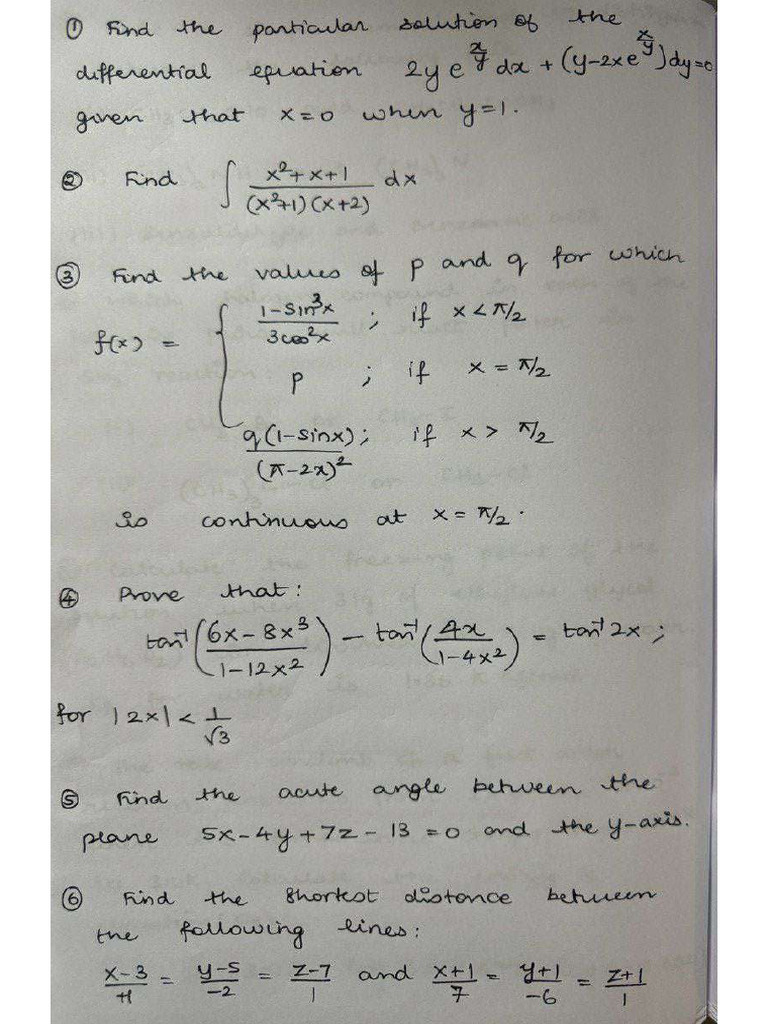 ① Find the particular solution of the
differential equation 2y e^{x/y} dx + (y-2xe^{x/y})dy=0
given that x=0 when y=1.
② Find ∫ (x²+x+1)/((x²+1)(x+2)) dx
③ Find the values of p and q for which
f(x) = { (1-sin³x)/(3cos²x) ; if x<π/2
p ; if x = π/2
q(1-sinx)/(π-2x)² ; if x > π/2
is continuous at x=π/2.
④ Prove that:
tan⁻¹((6x-8x³)/(1-12x²)) - tan⁻¹(4x/(1-4x²)) = tan⁻¹2x ;
for |2x| < 1/√3
⑤ Find the acute angle between the
plane 5x-4y+7z-13=0 and the y-axis.
⑥ Find the shortest distance between
the following lines:
(x-3)/+1 = (y-5)/-2 = (z-7)/1 and (x+1)/7 = (y+1)/-6 = (z+1)/1